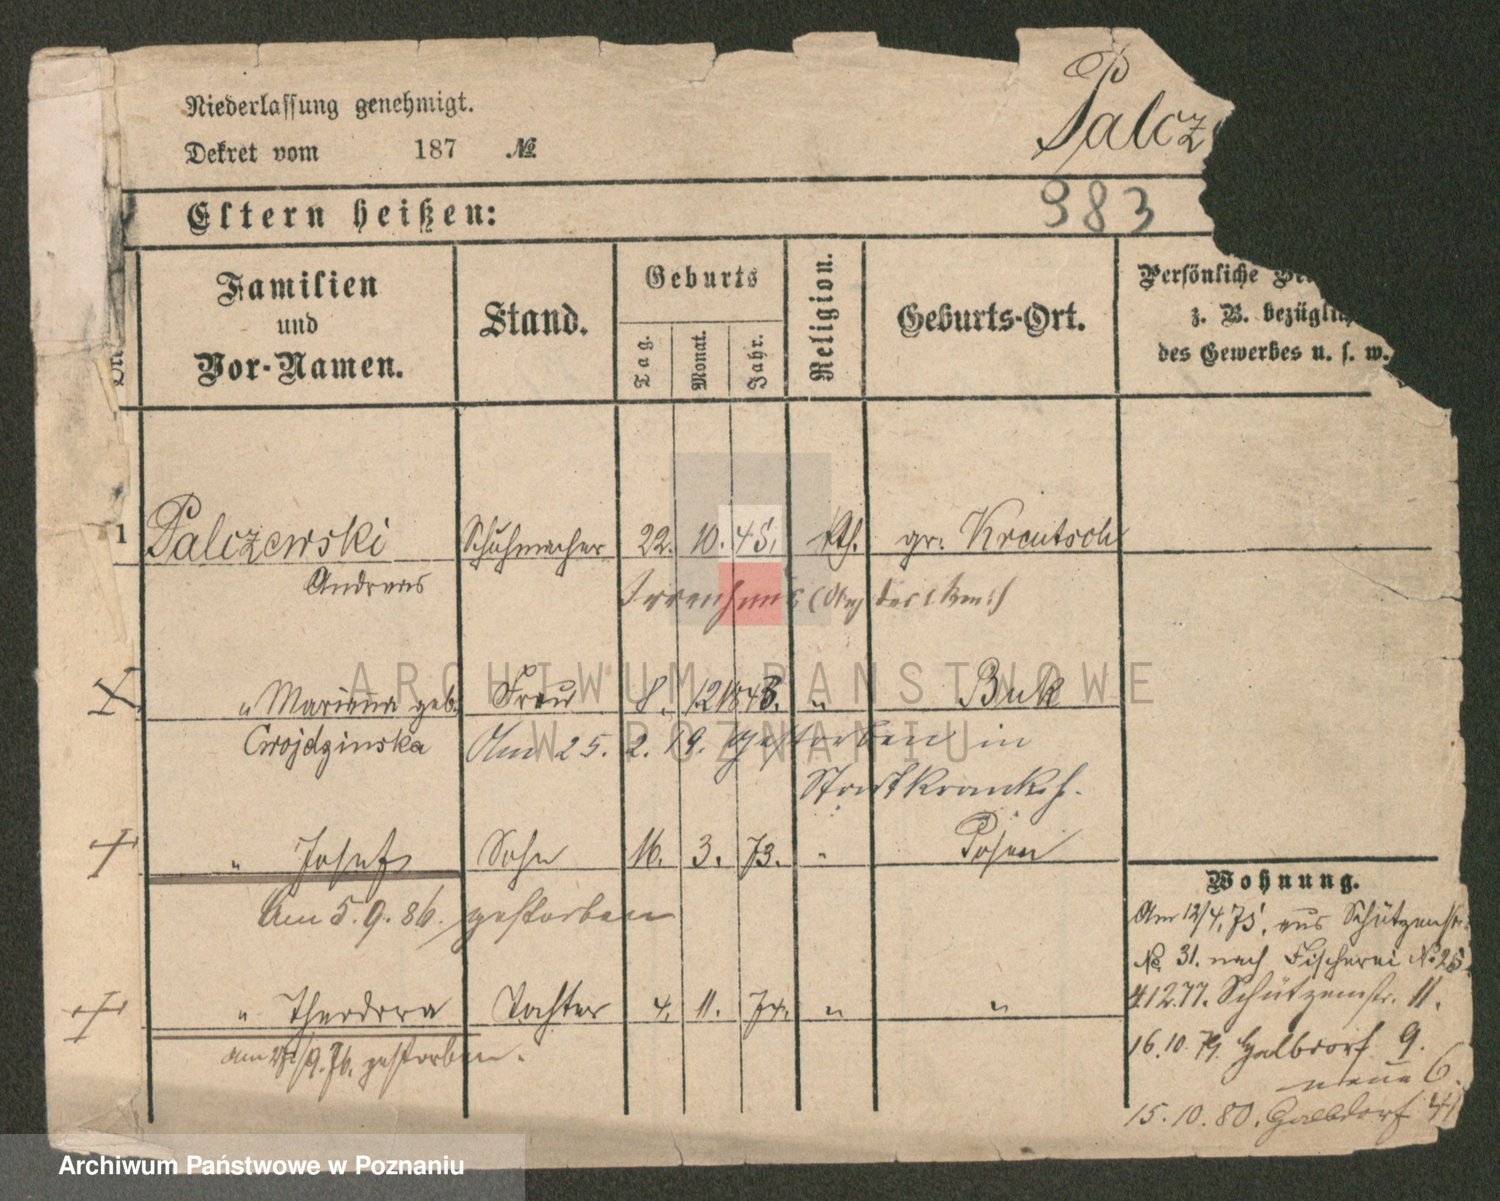 Niederlassung genehmigt.
Dekret vom 187 №
Palcz
983
Eltern heißen:
Familien und Vor-Namen.
Stand.
Geburts
Tag.
Monat.
Jahr.
Religion.
Geburts-Ort.
Persönliche
z. B. bezüglich
des Gewerbes u. s. w.
1 Palczewski Schuhmacher 22. 10. 45. kth. gr. Kreutsch
Andreas
Irrenhaus
" Marianna geb. Frau 8. 12 1843. " Buk
Cwojdzinska Am 25. 2. 19. gestorben in
Stadtkrankh.
" Josef Sohn 16. 3. 73. " Posen
Am 5. 9. 86. gestorben
" Theodora Tochter 4. 11. 74. " "
am /9. 76. gestorben.
Wohnung.
Am 12/4. 75. aus Schützenstr.
No. 31. nach Fischerei No 25
4.12.77. Schützenstr. 11.
16.10.79. Halbdorf 9.
neue 6.
15.10.80. Halbdorf 41
ARCHIWUM PAŃSTWOWE
W POZNANIU
Archiwum Państwowe w Poznaniu